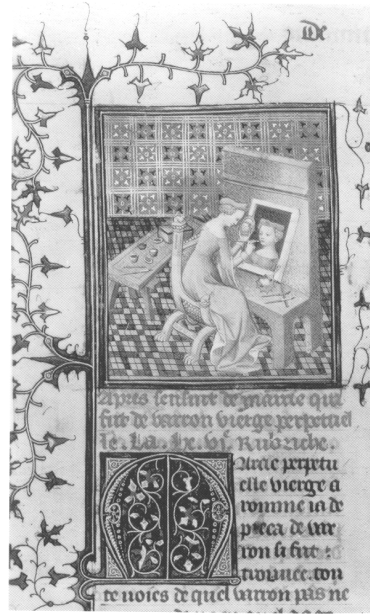 De
Apres sensuit de marcie qui
fut de varron vierge perpetuel
le. La. lx. vi. Rubriche.
Marcie perpetu
elle vierge a
romme ia de
pieca de var
ron si fut
trouuee. ton
te uoies de quel varron pas ne